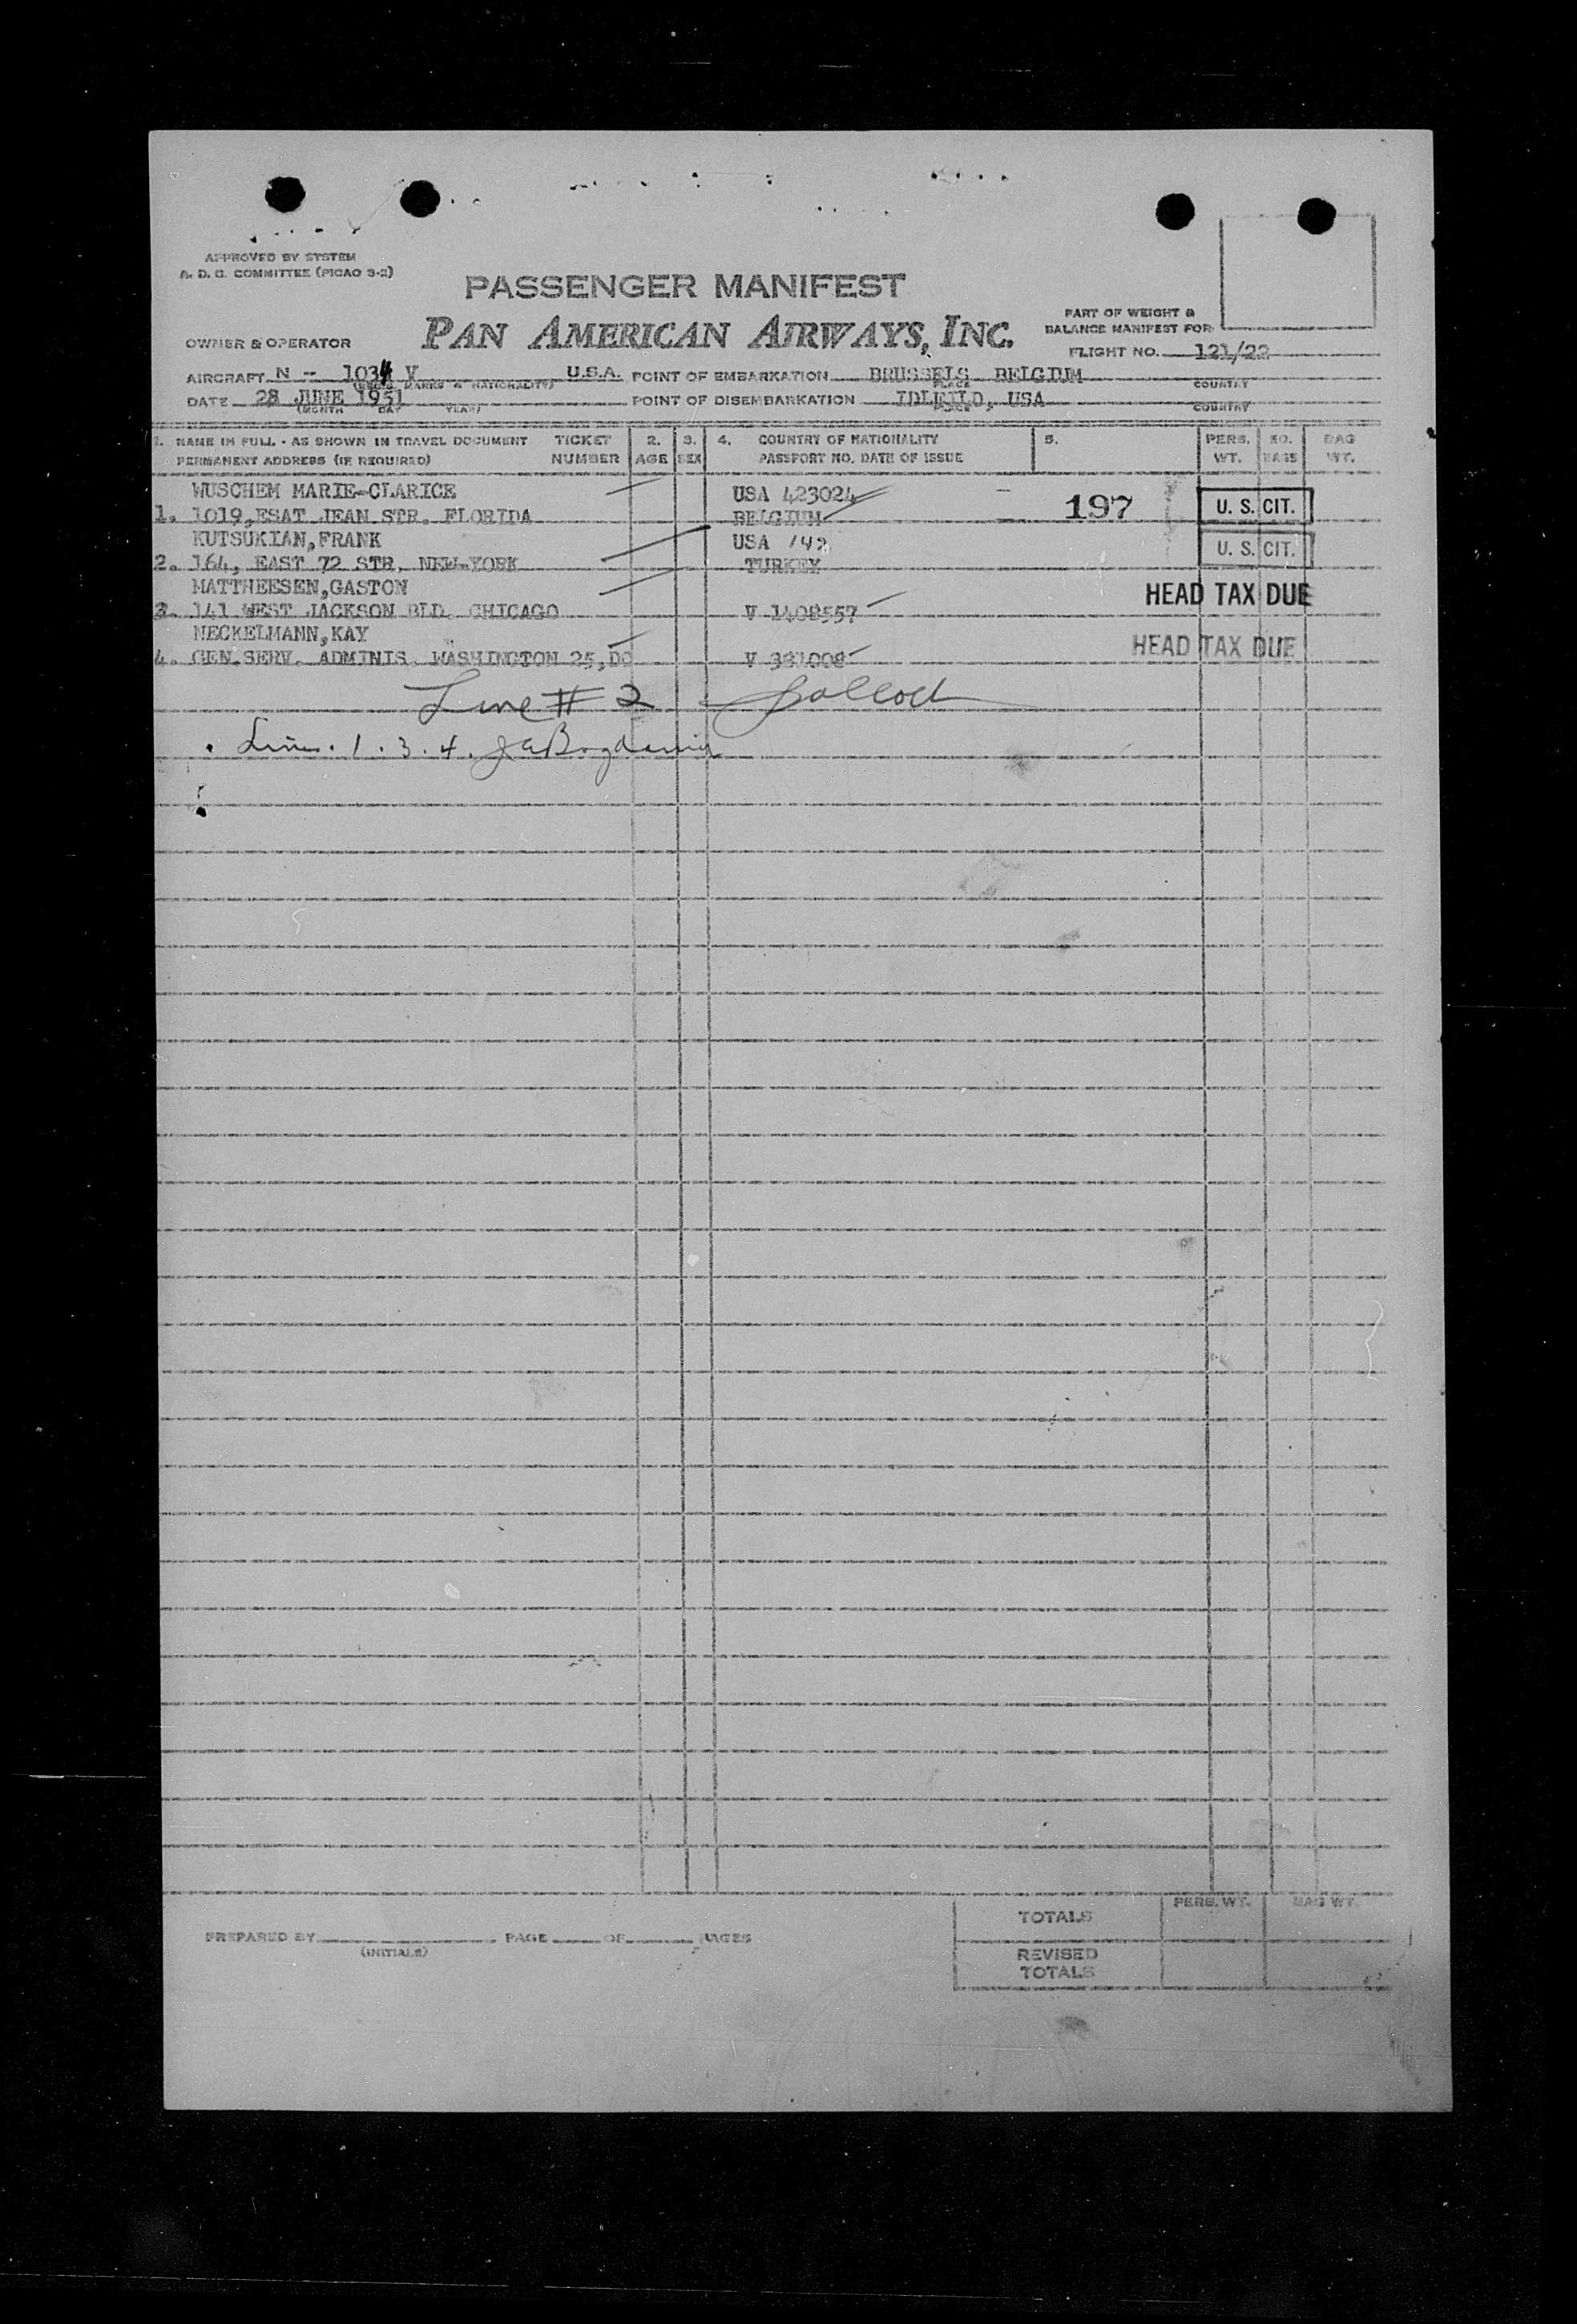 APPROVED BY SYSTEM
A. D. C. COMMITTEE (PICAO S-2)
PASSENGER MANIFEST
PAN AMERICAN AIRWAYS, INC.
PART OF WEIGHT &
BALANCE MANIFEST FOR
OWNER & OPERATOR
FLIGHT NO. 121/22
AIRCRAFT N - 1034 V U.S.A. POINT OF EMBARKATION BRUSSELS BELGIUM
(REG'S MARKS & NATIONALITY) PLACE COUNTRY
DATE 28 JUNE 1951 POINT OF DISEMBARKATION IDLEILD, USA
(MONTH DAY YEAR) PLACE COUNTRY
1. NAME IN FULL - AS SHOWN IN TRAVEL DOCUMENT TICKET 2. 3. 4. COUNTRY OF NATIONALITY 5. PERS. NO. BAG
PERMANENT ADDRESS (IF REQUIRED) NUMBER AGE SEX PASSPORT NO. DATE OF ISSUE WT. BAGS WT.
WUSCHEM MARIE-CLARICE USA 423024
1. 1019,ESAT JEAN STR. FLORIDA BELGIUM 197 U. S. CIT.
KUTSUKIAN,FRANK USA 142
2. 164, EAST 72 STR. NEW-YORK TURKEY U. S. CIT.
MATTHEESEN,GASTON HEAD TAX DUE
3. 141 WEST JACKSON BLD. CHICAGO V 1408557
NECKELMANN,KAY HEAD TAX DUE
4. GEN.SERV. ADMINIS. WASHINGTON 25,DC V 381008
Line # 2
Lines. 1. 3. 4.
TOTALS PERS. WT. BAG WT.
PREPARED BY PAGE OF PAGES
(INITIALS)
REVISED
TOTALS